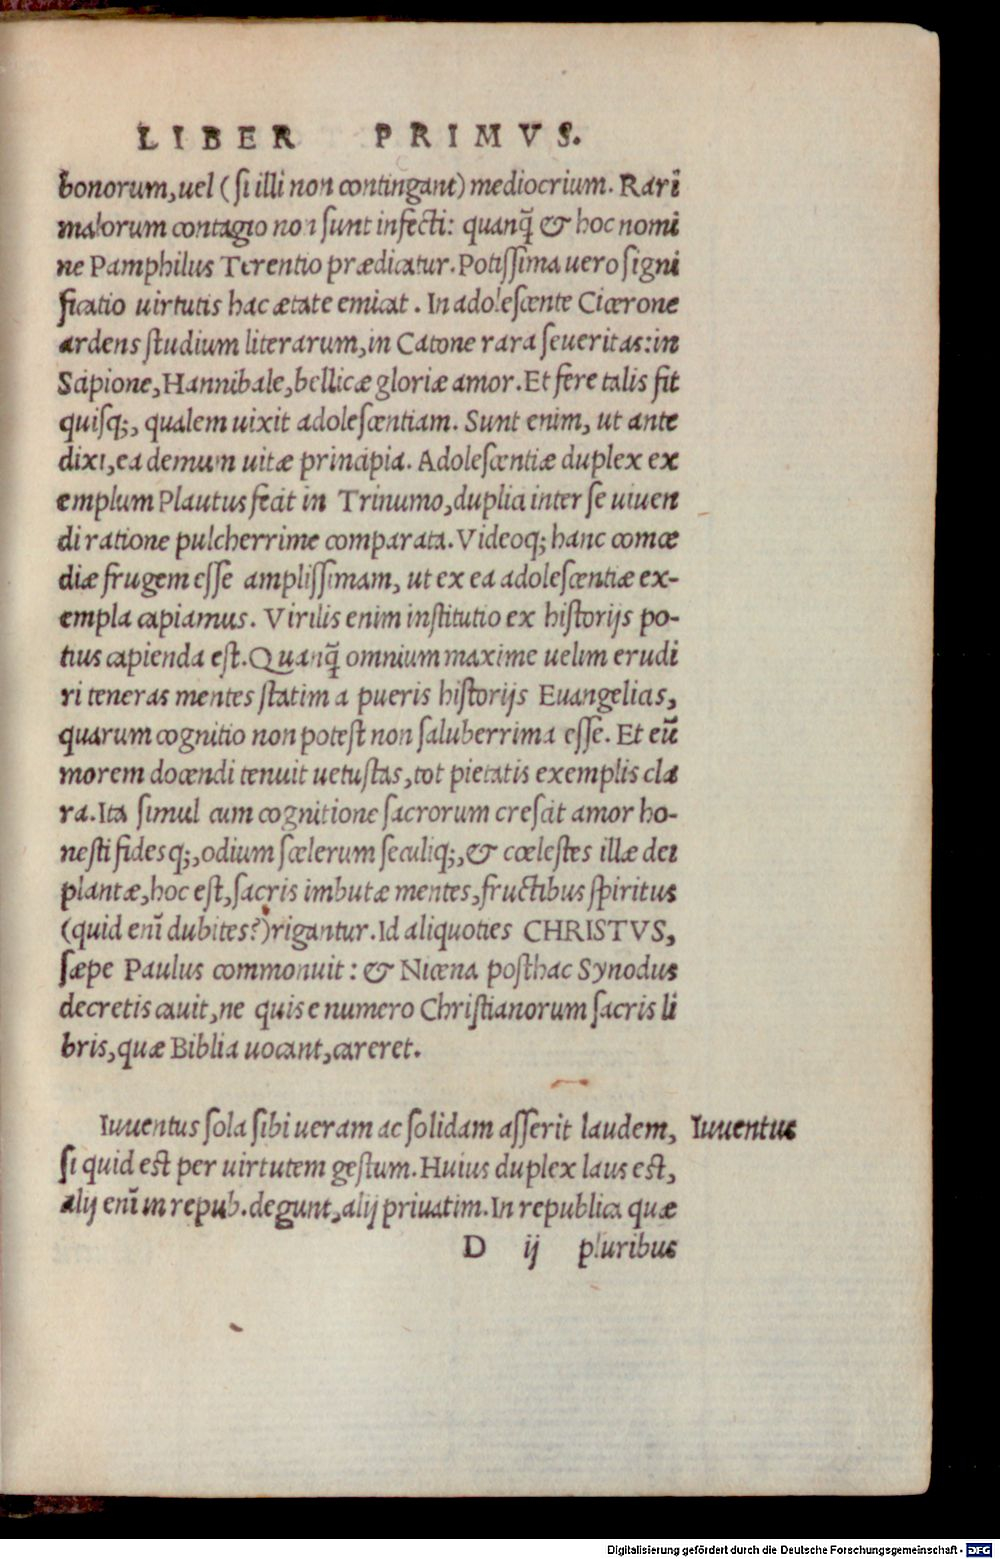 LIBER PRIMVS.
bonorum, uel (ſi illi non contingant) mediocrium. Rari
malorum contagio non ſunt infecti: quanq̃ & hoc nomi
ne Pamphilus Terentio prædicatur. Potiſſima uero ſigni
ficatio uirtutis hac ætate emicat. In adoleſcente Cicerone
ardens ſtudium literarum, in Catone rara ſeueritas: in
Scipione, Hannibale, bellicæ gloriæ amor. Et fere talis fit
quiſq;, qualem uixit adoleſcentiam. Sunt enim, ut ante
dixi, ea demum uitæ principia. Adoleſcentiæ duplex ex
emplum Plautus fecit in Trinumo, duplici inter ſe uiuen
di ratione pulcherrime comparata. Videoq; hanc comœ
diæ frugem eſſe ampliſſimam, ut ex ea adoleſcentiæ ex-
empla capiamus. Virilis enim inſtitutio ex hiſtorijs po-
tius capienda eſt. Quanq̃ omnium maxime uelim erudi
ri teneras mentes ſtatim a pueris hiſtorijs Euangelicis,
quarum cognitio non poteſt non ſaluberrima eſſe. Et eũ
morem docendi tenuit uetuſtas, tot pietatis exemplis cla
ra. Ita ſimul cum cognitione ſacrorum creſcit amor ho-
neſti fidesq;, odium ſcelerum ſeculiq;, & cœleſtes illæ dei
plantæ, hoc eſt, ſacris imbutæ mentes, fructibus ſpiritus
(quid enī dubites?) rigantur. Id aliquoties CHRISTVS,
ſæpe Paulus commonuit: & Nicena poſthac Synodus
decretis cauit, ne quis e numero Chriſtianorum ſacris li
bris, quæ Biblia uocant, careret.
Iuuentus ſola ſibi ueram ac ſolidam aſſerit laudem,
Iuuentus
ſi quid eſt per uirtutem geſtum. Huius duplex laus eſt,
alij enī in repub. degunt, alij priuatim. In republica quæ
D ij pluribus
Digitalisierung gefördert durch die Deutsche Forschungsgemeinschaft - DFG